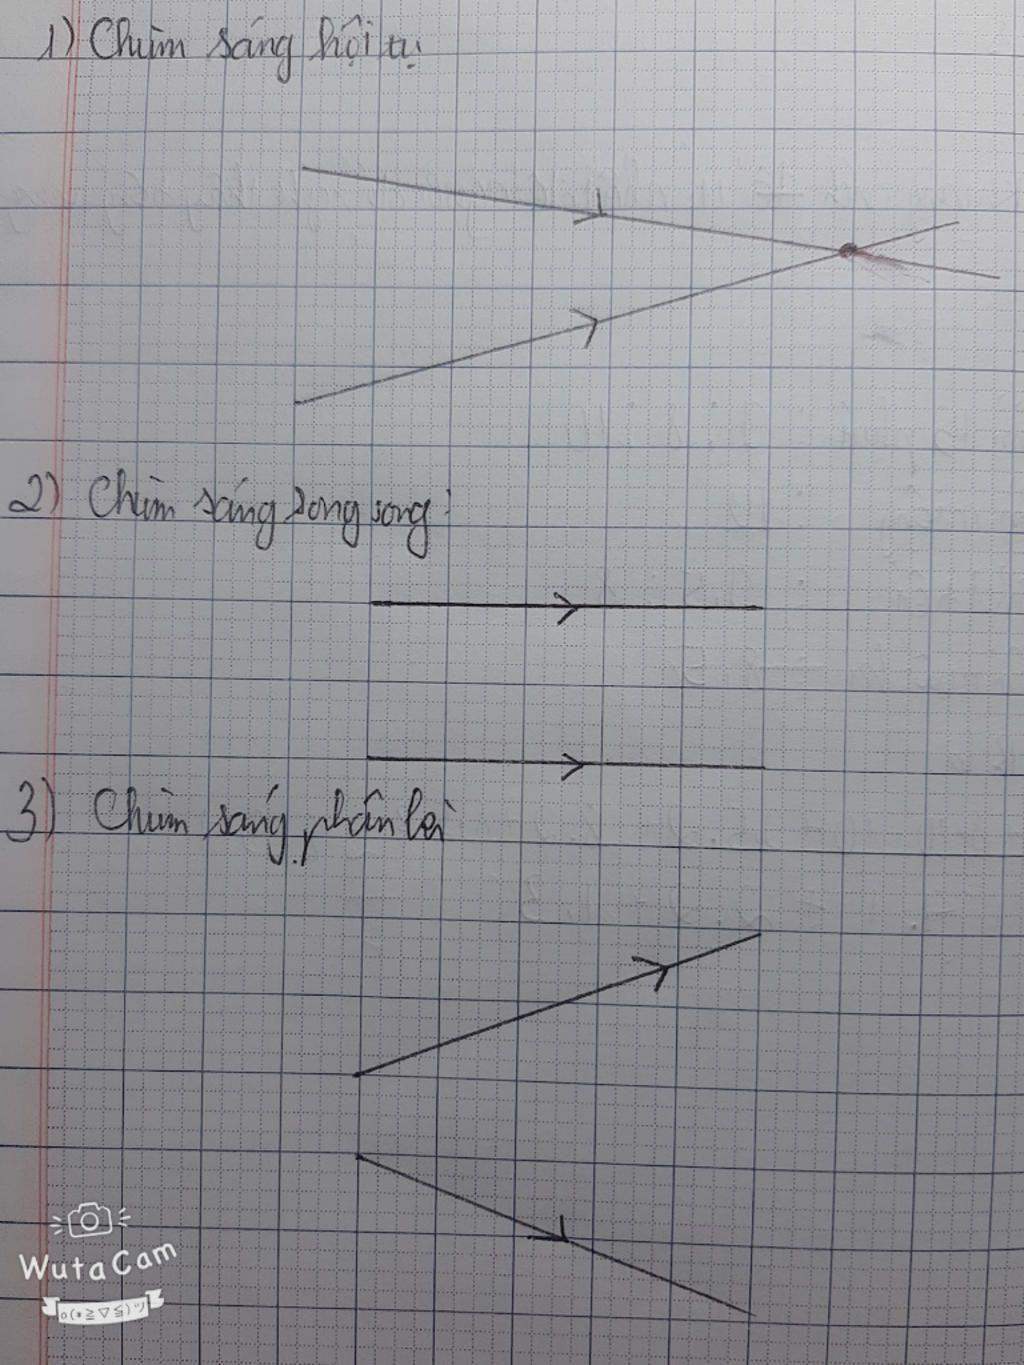 1) Chùm sáng hội tụ
2) Chùm sáng song song:
3) Chùm sáng phân
WutaCam